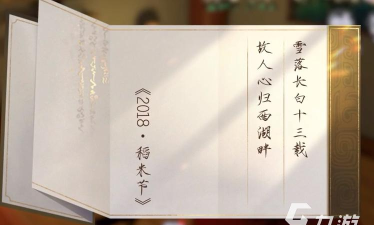 雪落长白十三载
故人心归西湖畔
《2018·稻米节》
九游